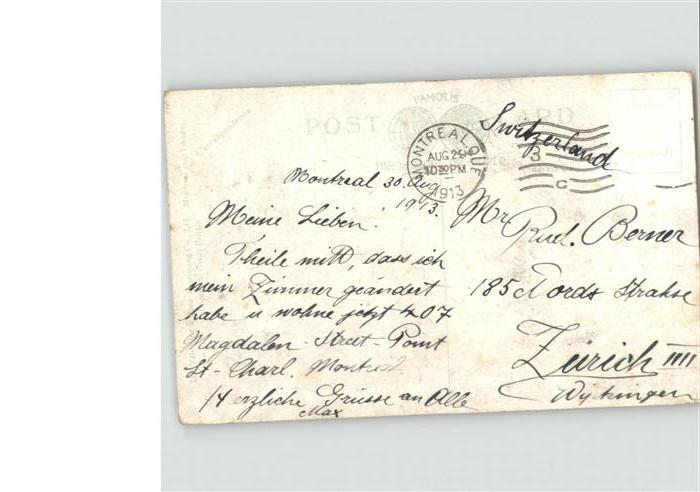 FAMOUS
POST CARD
MONTREAL, QUE
AUG 29
10 30 PM
1913
3
C
Switzerland
Montreal 30. Aug
1913.
Meine Lieben!
Theile mitt, dass ich
mein Zimmer geändert
habe u wohne jetzt 407
Magdalen - Street - Point
St - Charl. Montreal
Herzliche Grüsse an Alle
Max
Mr
Rud. Berner
185 Nords Strahse
Zürich IIII
Wipkingen